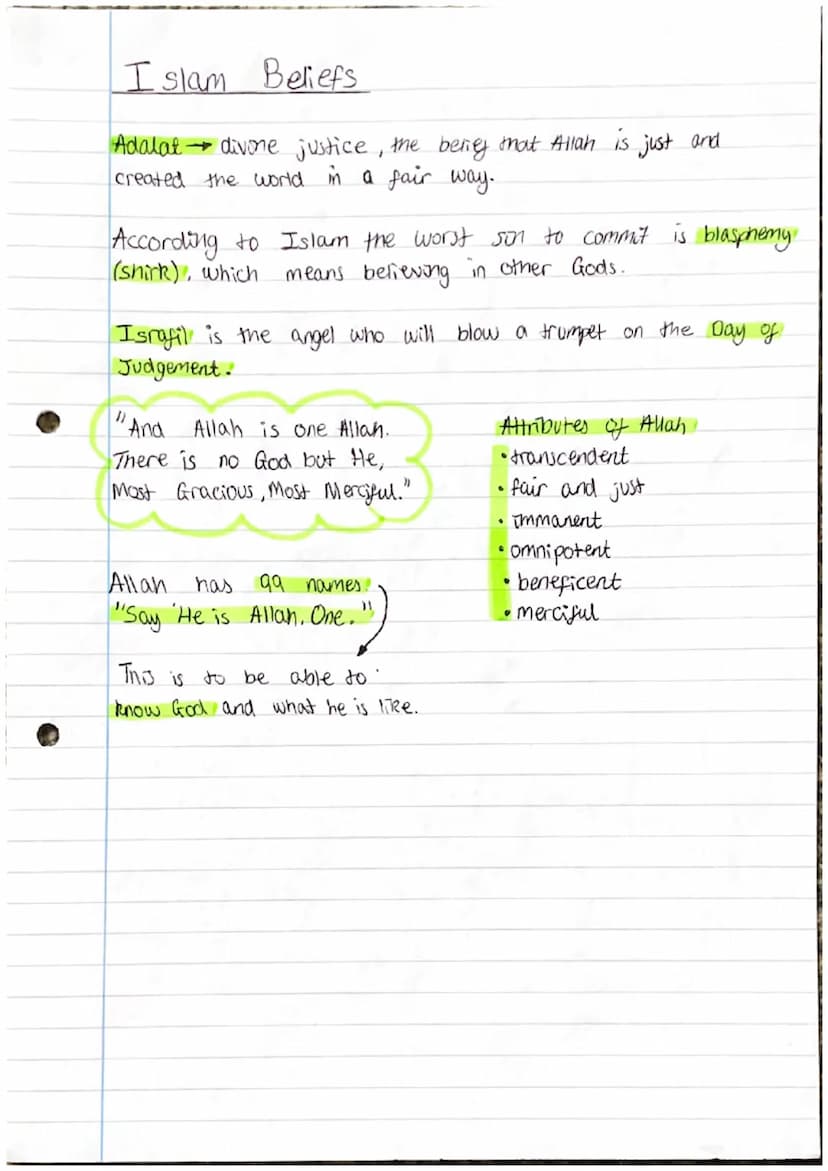 Islam Beliefs
Adalat → divine justice, the belief that Allah is just and
created the world in a fair way.
According to Islam the worst sin to commit is blasphemy
(shirk), which means believing in other Gods.
Israfil is the angel who will blow a trumpet on the Day of
Judgement.
"And Allah is one Allah.
There is no God but He,
Most Gracious, Most Merciful."
Attributes of Allah
• transcendent
• fair and just
• immanent
• omnipotent
• beneficent
• merciful
Allah has 99 names.
"Say 'He is Allah, One."
This is to be able to
know God and what he is like.